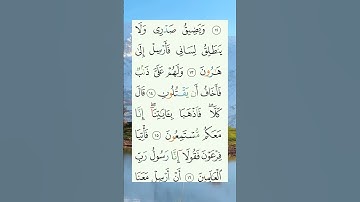 ١٢ وَيَضِيقُ صَدْرِى وَلَا
يَنطَلِقُ لِسَانِى فَأَرْسِلْ إِلَىٰ
هَٰرُونَ ١٣ وَلَهُمْ عَلَىَّ ذَنۢبٌ
فَأَخَافُ أَن يَقْتُلُونِ ١٤ قَالَ
كَلَّا ۖ فَٱذْهَبَا بِـَٔايَٰتِنَآ ۖ إِنَّا
مَعَكُم مُّسْتَمِعُونَ ١٥ فَأْتِيَا
فِرْعَوْنَ فَقُولَآ إِنَّا رَسُولُ رَبِّ
ٱلْعَٰلَمِينَ ١٦ أَنْ أَرْسِلْ مَعَنَا